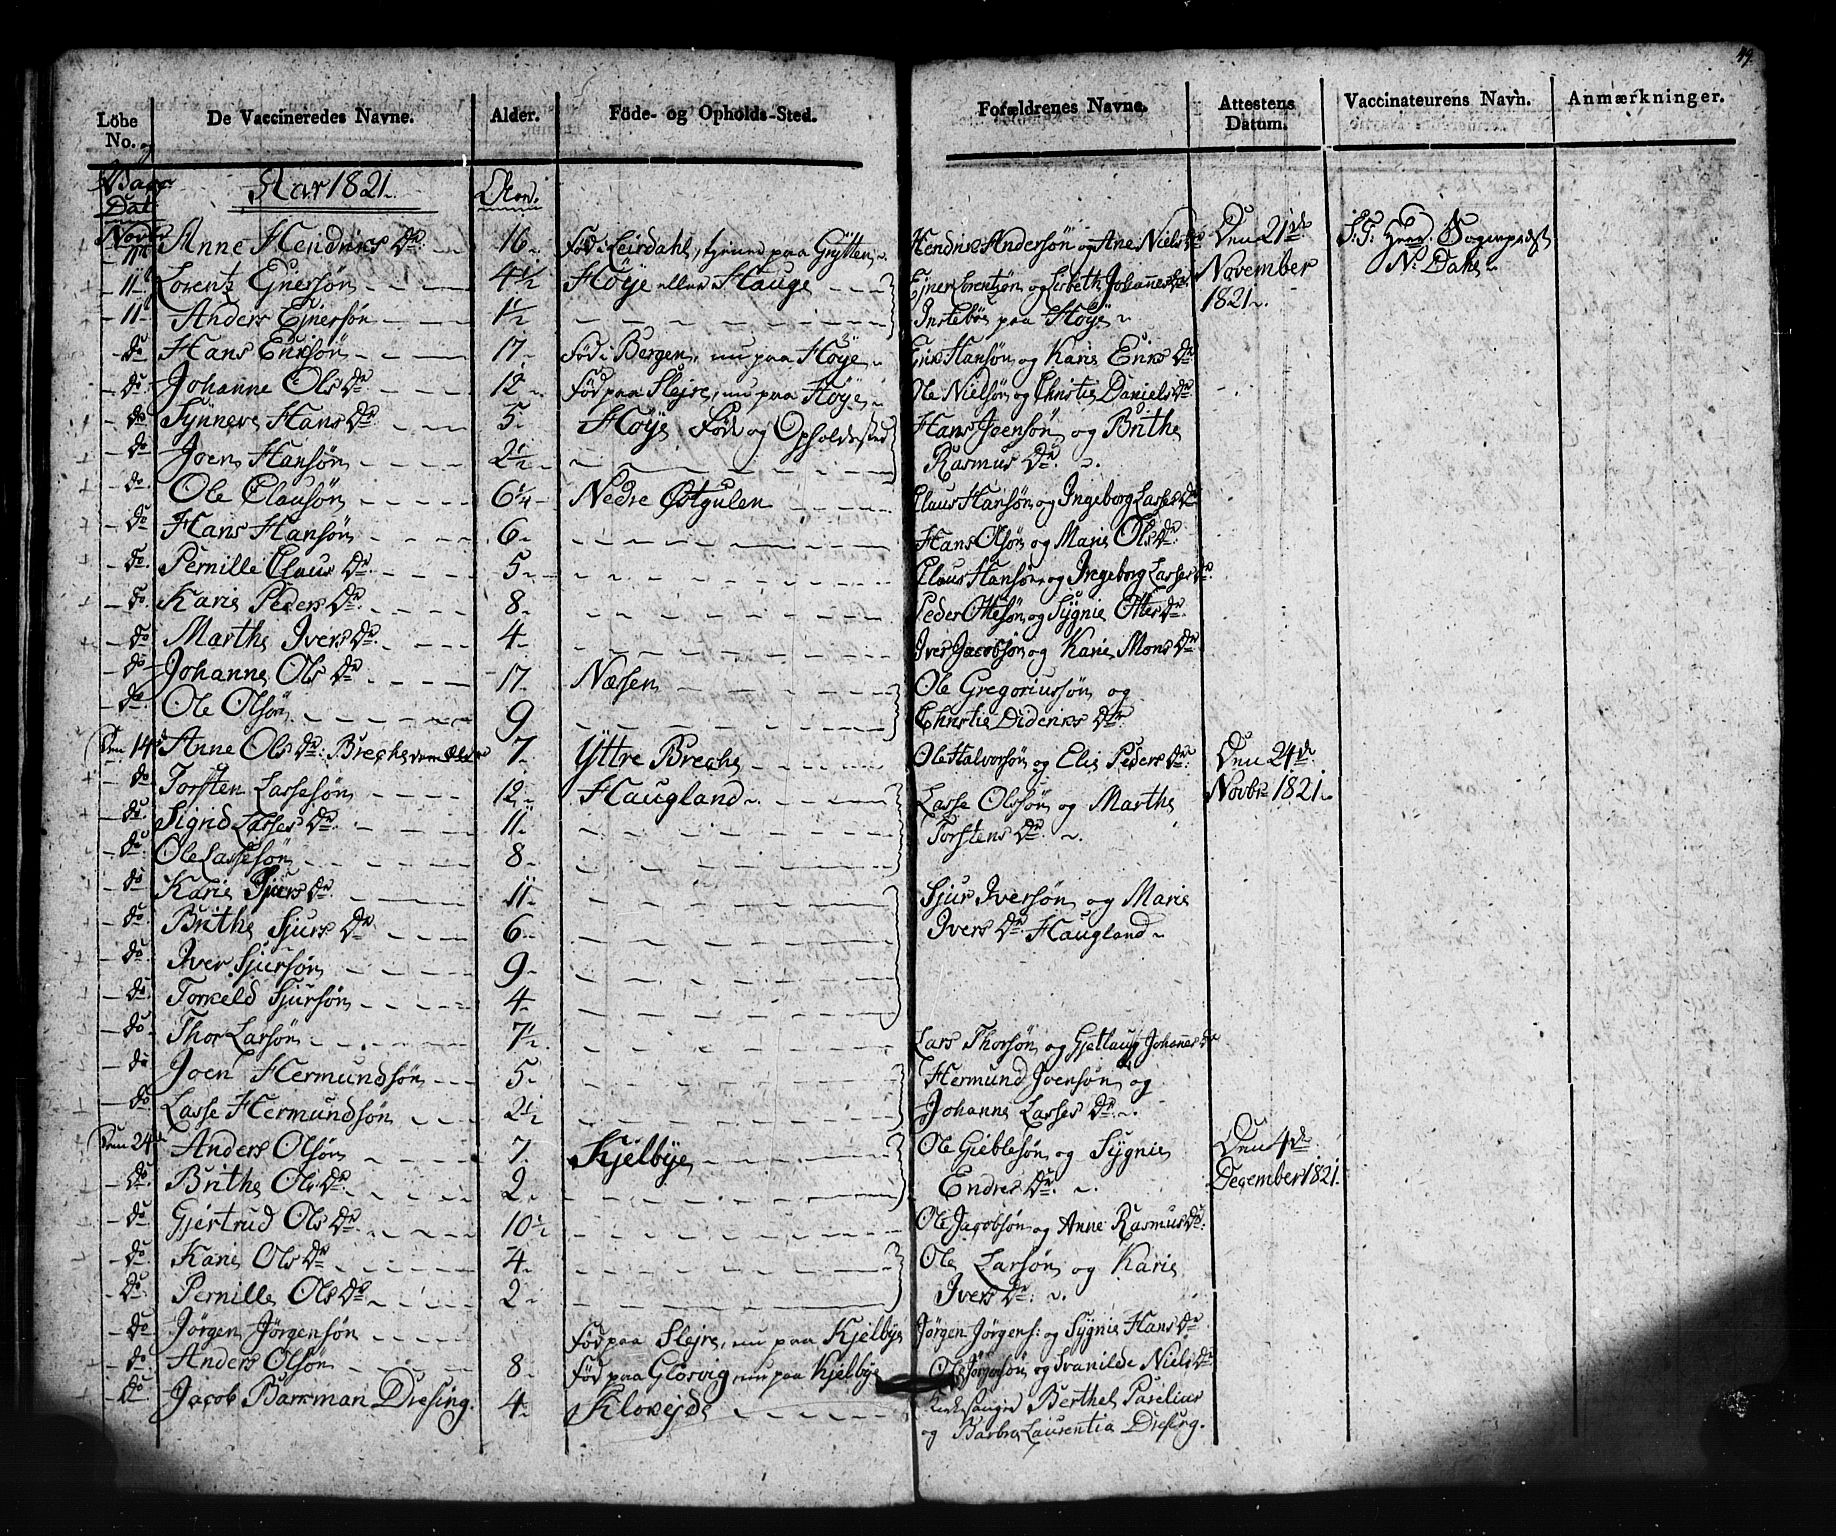 49.
Löbe No. De Vaccineredes Navne. Alder. Föde- og Opholds-Sted. Forældrenes Navne. Attestens Datum. Vaccinateurens Navn. Anmærkninger.
Vacc: Dat: Aar 1821. Aar.
Novbr 11te Anne Hendriks Dr: 16 Föd i Leirdahl, tjener paa Grytten Hendrik Andersön og Ane Niels Dr Den 21de S. T. Herr Sognepræst
11 Lorentz Ejnersön 4 1/2 Höye eller Hauge Ejner Lorentzön og Lisbeth Johannes Dr November N: Dahl
11 Anders Ejnersön 1 1/2 Instebön paa Höye 1821.
do Hans Eriksön 17 Föd i Bergen, nu paa Höye Erik Hansön og Karie Eriks Dr
do Johanne Ols Dr 12 Föd paa Slejre, nu paa Höye Ole Nielsön og Christie Daniels Dr
do Synneve Hans Dr 5 Höye Föde og Opholdssted Hans Joensön og Brithe
do Joen Hansön 2 1/2 Rasmus Dr.
do Ole Clausön 6 1/4 Nedre Østgulen Claus Hansön og Ingeborg Lasses Dr
do Hans Hansön 6 Hans Olsön og Marie Ols Dr
do Pernille Claus Dr 5 Claus Hansön og Ingeborg Lasses Dr
do Karie Peders Dr 8 Peder Ottesön og Sygnie Ottes Dr
do Marthe Ivers Dr 4 Iver Jacobsön og Karie Mons Dr
do Johanne Ols Dr 17 Næssen Ole Gregoriussön og
do Ole Olsön 9 Christie Dideriks Dr
Den 14de Anne Ols Dr: Breche 7 Yttre Breche Ole Halvorsön og Elie Peders Dr Den 24de
do Torsten Lassesön 12 Haugland Lasse Olssön og Marthe Novbr 1821.
do Sigrid Lasses Dr 11 Torstens Dr.
do Ole Lassesön 8
do Karie Sjurs Dr 11 Sjur Iversön og Marie
do Brithe Sjurs Dr 6 Ivers Dr Haugland
do Iver Sjursön 9
do Torkeld Sjursön 4
do Thor Larsön 7 1/2 Lars Thorsön og Gjetlaug Johannes Dr
do Joen Hermundsön 5 Hermund Joensön og
do Lasse Hermundsön 2 1/2 Johanne Lasses Dr.
Den 24de Anders Olsön 7 Kjelbye Ole Gieblesön og Sygnie Den 4de
do Brithe Ols Dr 2 Endres Dr. December 1821.
do Gjertrud Ols Dr 10 1/2 Ole Jacobsön og Anne Rasmus Dr
do Karie Ols Dr 4 Ole Larsön og Karie
do Pernille Ols Dr 2 Ivers Dr.
do Jörgen Jörgensön Föd paa Slejre, nu paa Kjelbye Jörgen Jörgens: og Sygnie Hans Dr
do Anders Olsön 8 Föd paa Glosvig nu paa Kjelbye Ole Jörgensön og Svanilde Niels Dr
do Jacob Barkman Dresing. 4 Klovejde Kirkesanger Berthel Paselius
og Barbra Laurentia Dresing.